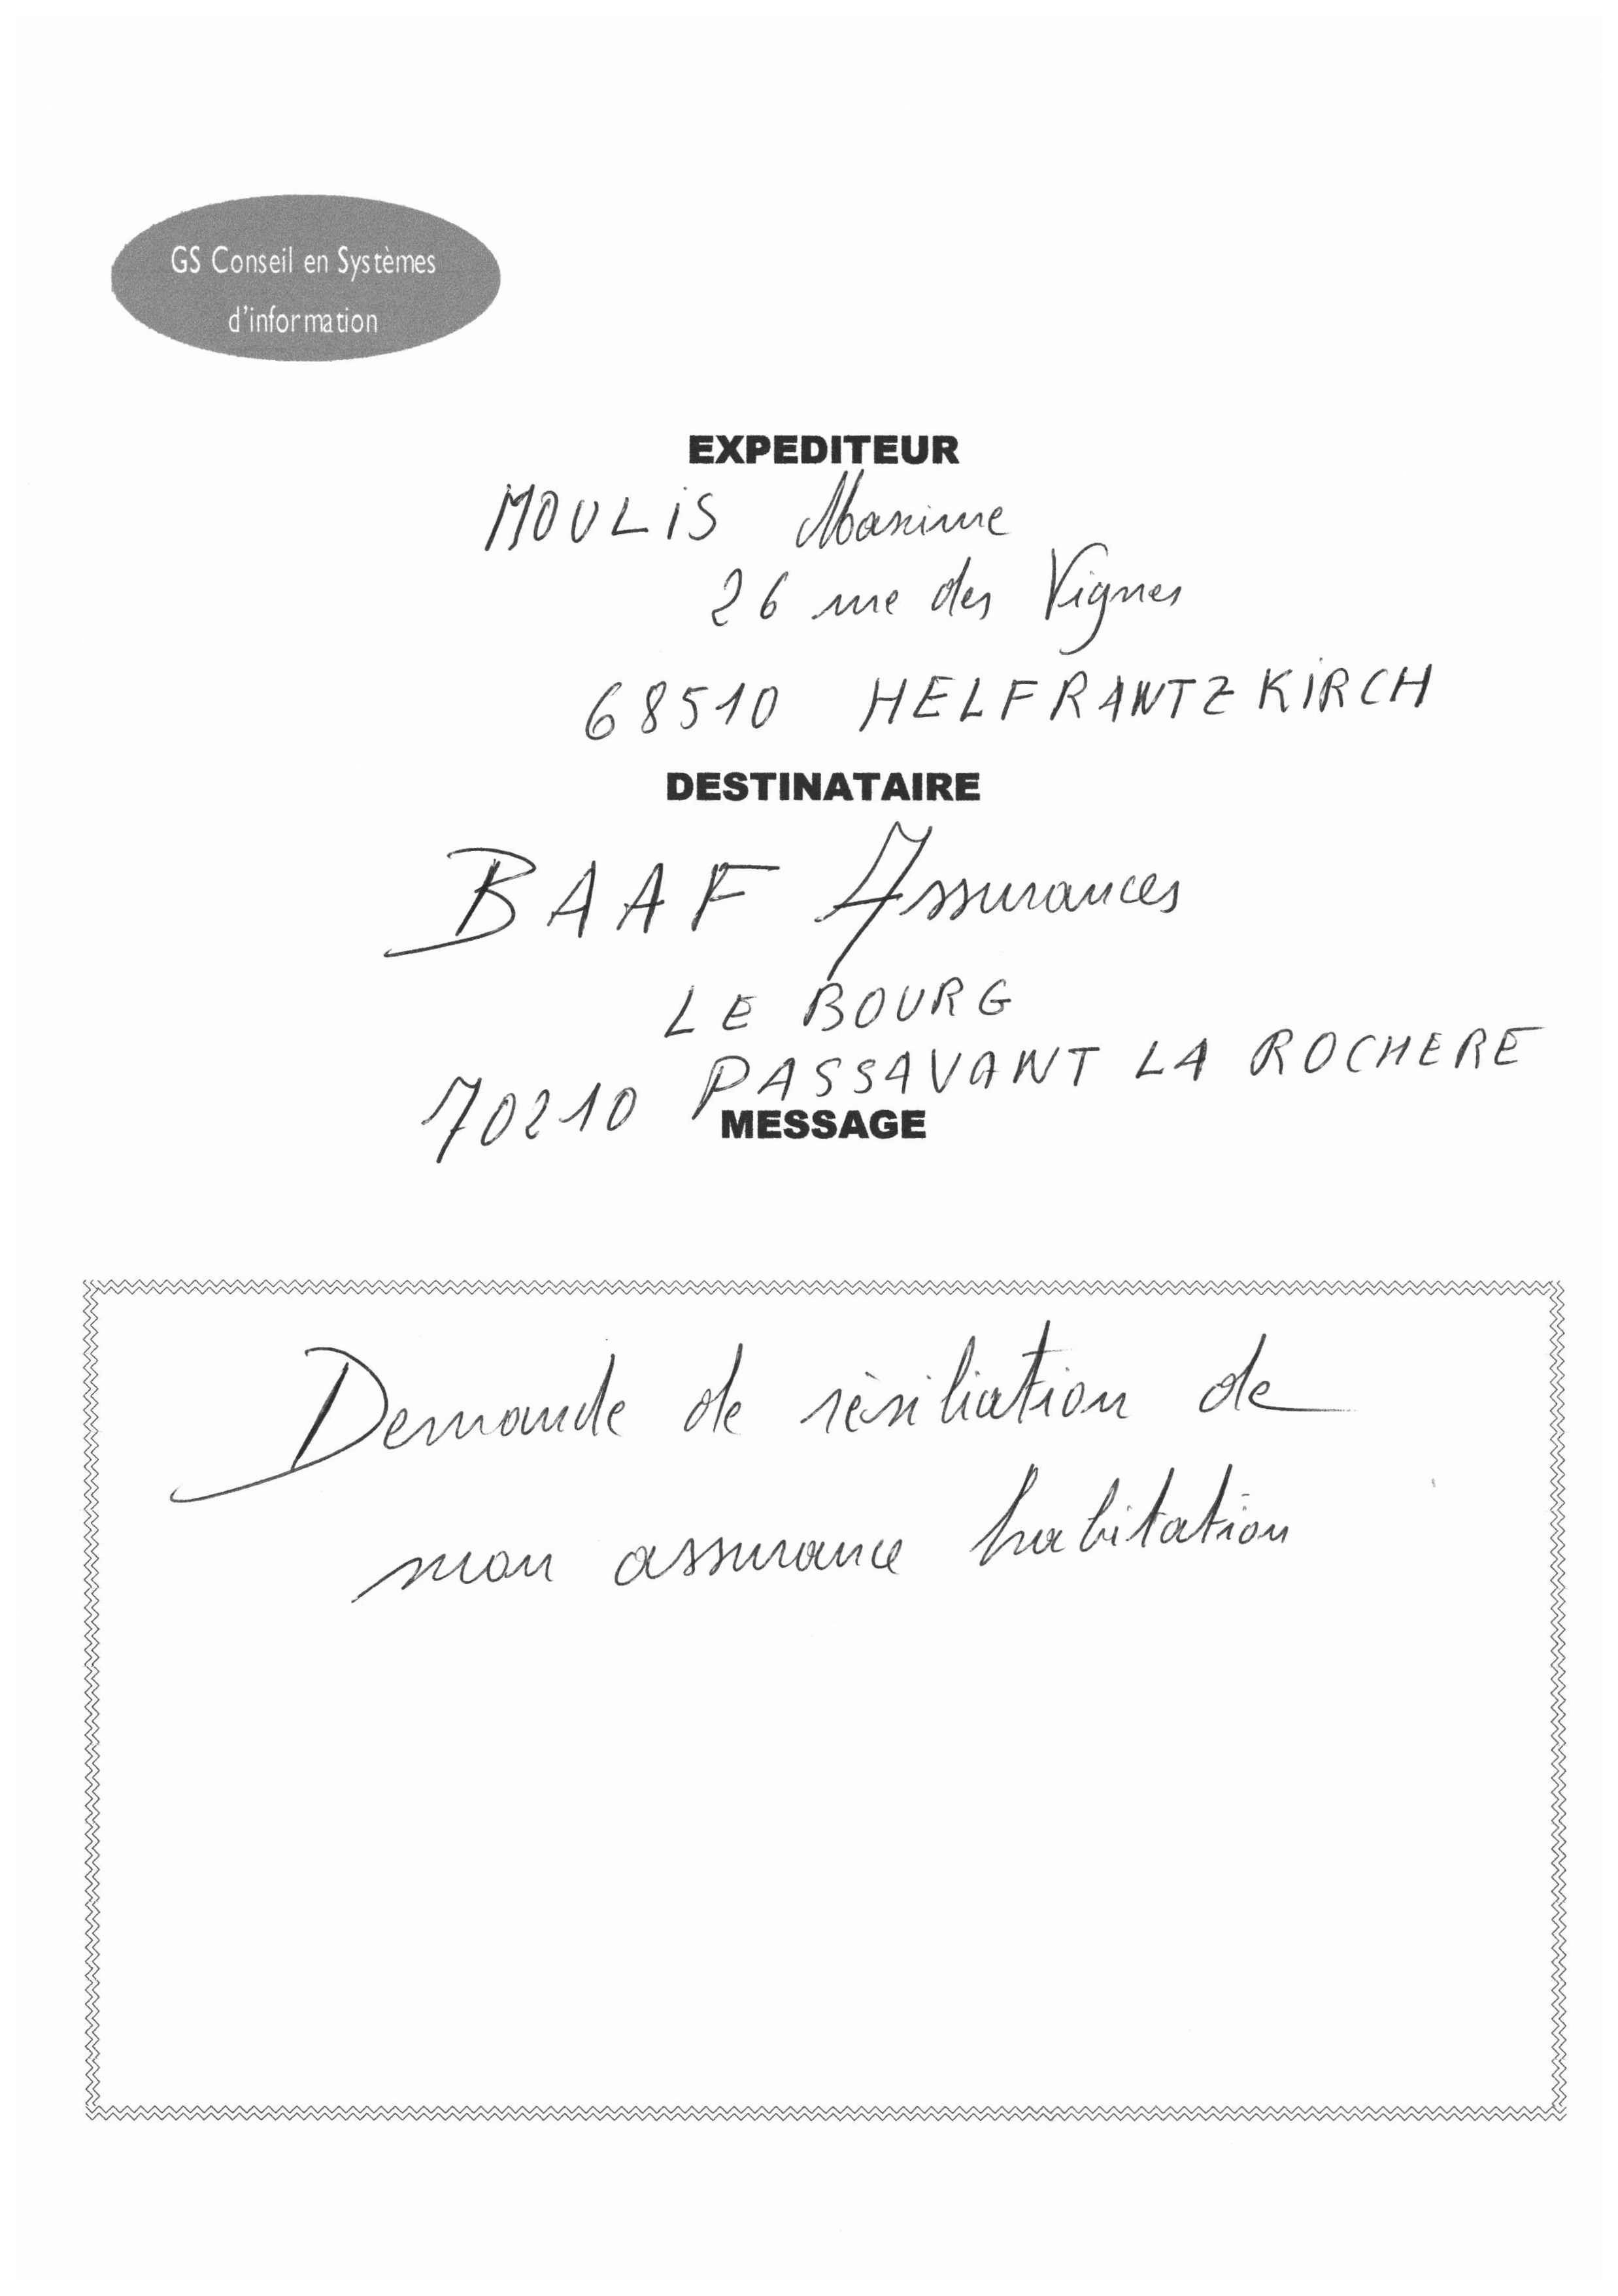 GS Conseil en Systèmes
d'information
EXPEDITEUR
MOULIS Maxime
26 rue des Vignes
68510 HELFRANTZKIRCH
DESTINATAIRE
BAAF Assurances
LE BOURG
70210 PASSAVANT LA ROCHERE
MESSAGE
Demande de résiliation de
mon assurance habitation